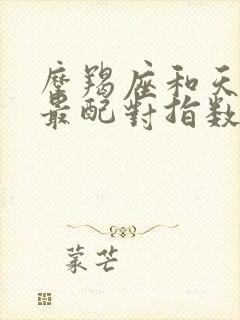 摩羯座和天
最配對指数
蒙芒